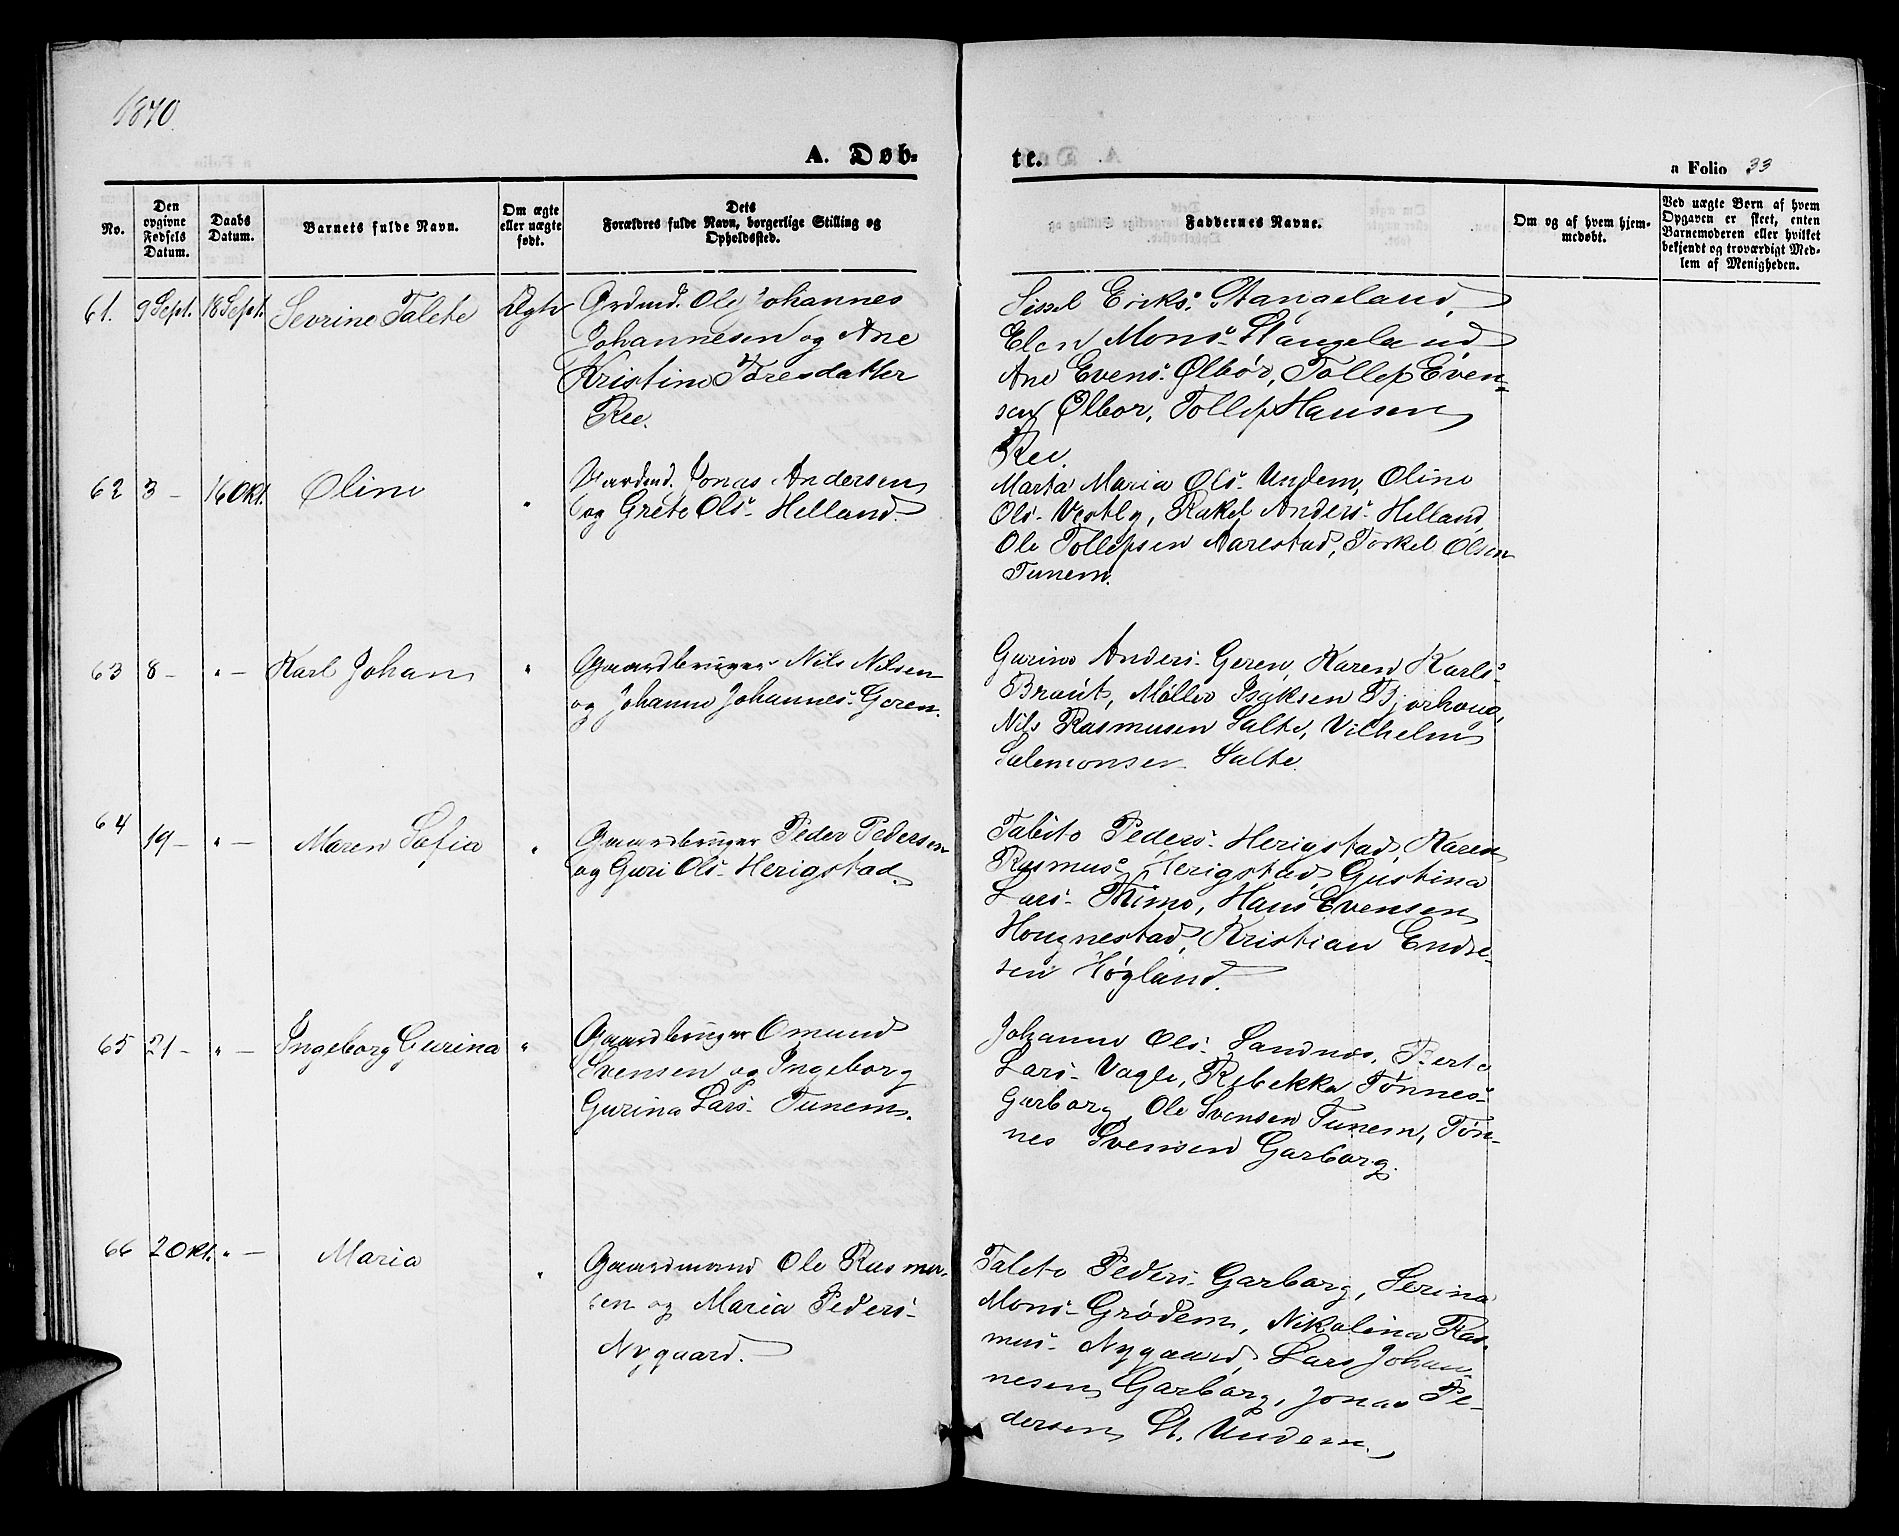 1870
A. Døb-
te.
a Folio 33
No.
Den opgivne Fødsels Datum.
Daabs Datum.
Barnets fulde Navn.
Om ægte eller uægte født.
Dets Forældres fulde Navn, borgerlige Stilling og Opholdssted.
Faddernes Navne.
Om og af hvem hjemmedøbt.
Ved uægte Børn af hvem Opgaven er skeet, enten Barnemoderen eller hvilket bekjendt og troværdigt Medlem af Menigheden.
61. 9 Sept. 18 Sept. Sevrine Talete Ægte Grdmd. Ole Johannes
Johannesen og Ane
Kristine Toresdatter
Ree.
Sissel Eriks: Stangeland,
Elen Mons: Stangeland
Ane Evens: Ølbør, Tollef Even-
sen Ølbor, Tollef Hansen
Ree.
62 3 - 16 Okt. Oline " Gaardmd. Jonas Andersen
og Grete Ols: Helland.
Marta Maria Ols: Undem, Oline
Ols- Vestly, Rakel Anders: Helland,
Ole Tollefsen Aarestad, Torkel Olsen
Tunem.
63 8 - " - Karl Johan " Gaardbruger Nils Nilsen
og Johanne Johannes: Geren.
Gurine Anders- Geren, Karen Karls-
Braut, Møller Isaksen Bjorhoug,
Nils Rasmusen Salte, Vilhelm
Salemonsen Salte.
64 19 - " - Maren Sofia " Gaardbruger Peder Pedersen
og Guri Ols- Herigstad.
Talete Peders- Herigstad, Karen
Rasmus- Herigstad, Gustina
Lars- Thime, Hans Evensen
Hougnestad, Kristian Endre-
sen Høgland.
65 21 - " - Ingeborg Gurina " Gaardbruger Omund
Svensen og Ingeborg
Gurina Lars- Tunem.
Johanne Ols- Sandnes, Berte
Lars- Vagle, Rebekka Tønnes-
Garborg, Ole Svensen Tunem, Tøn-
nes Svensen Garborg.
66 2 Okt. " - Maria " Gaardmand Ole Rasmu-
sen og Maria Peders-
Nygaard.
Talete Peders- Garborg, Serina
Mons- Grødem, Nikolina Ras-
mus- Nygaard, Lars Johan-
nesen Garborg, Jonas Pe-
dersen St. Undem.